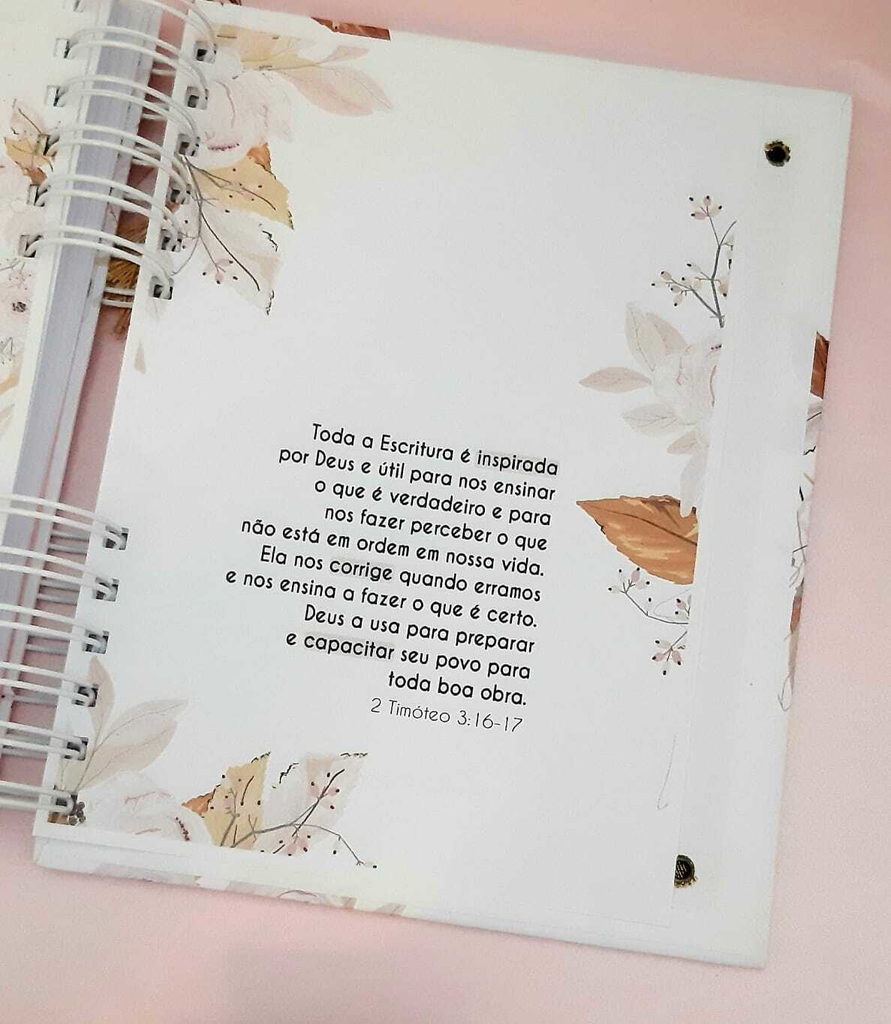 Toda a Escritura é inspirada
por Deus e útil para nos ensinar
o que é verdadeiro e para
nos fazer perceber o que
não está em ordem em nossa vida.
Ela nos corrige quando erramos
e nos ensina a fazer o que é certo.
Deus a usa para preparar
e capacitar seu povo para
toda boa obra.
2 Timóteo 3:16-17